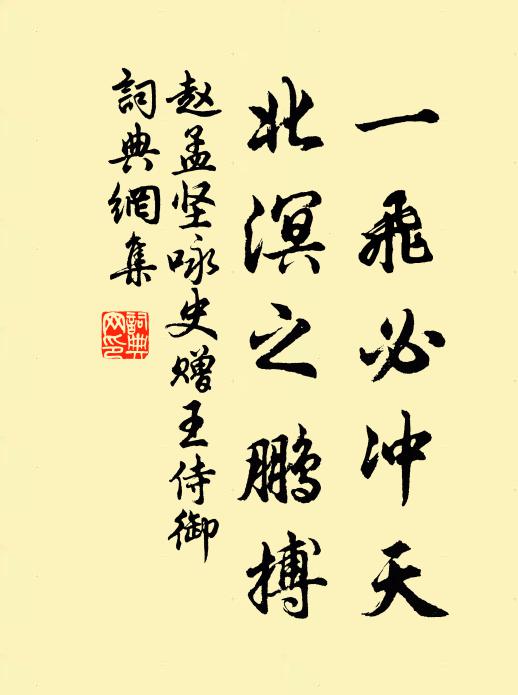 一飛必冲天
北溟之鵬搏
赵孟坚咏史赠王侍御
詞典網集
詞典网印